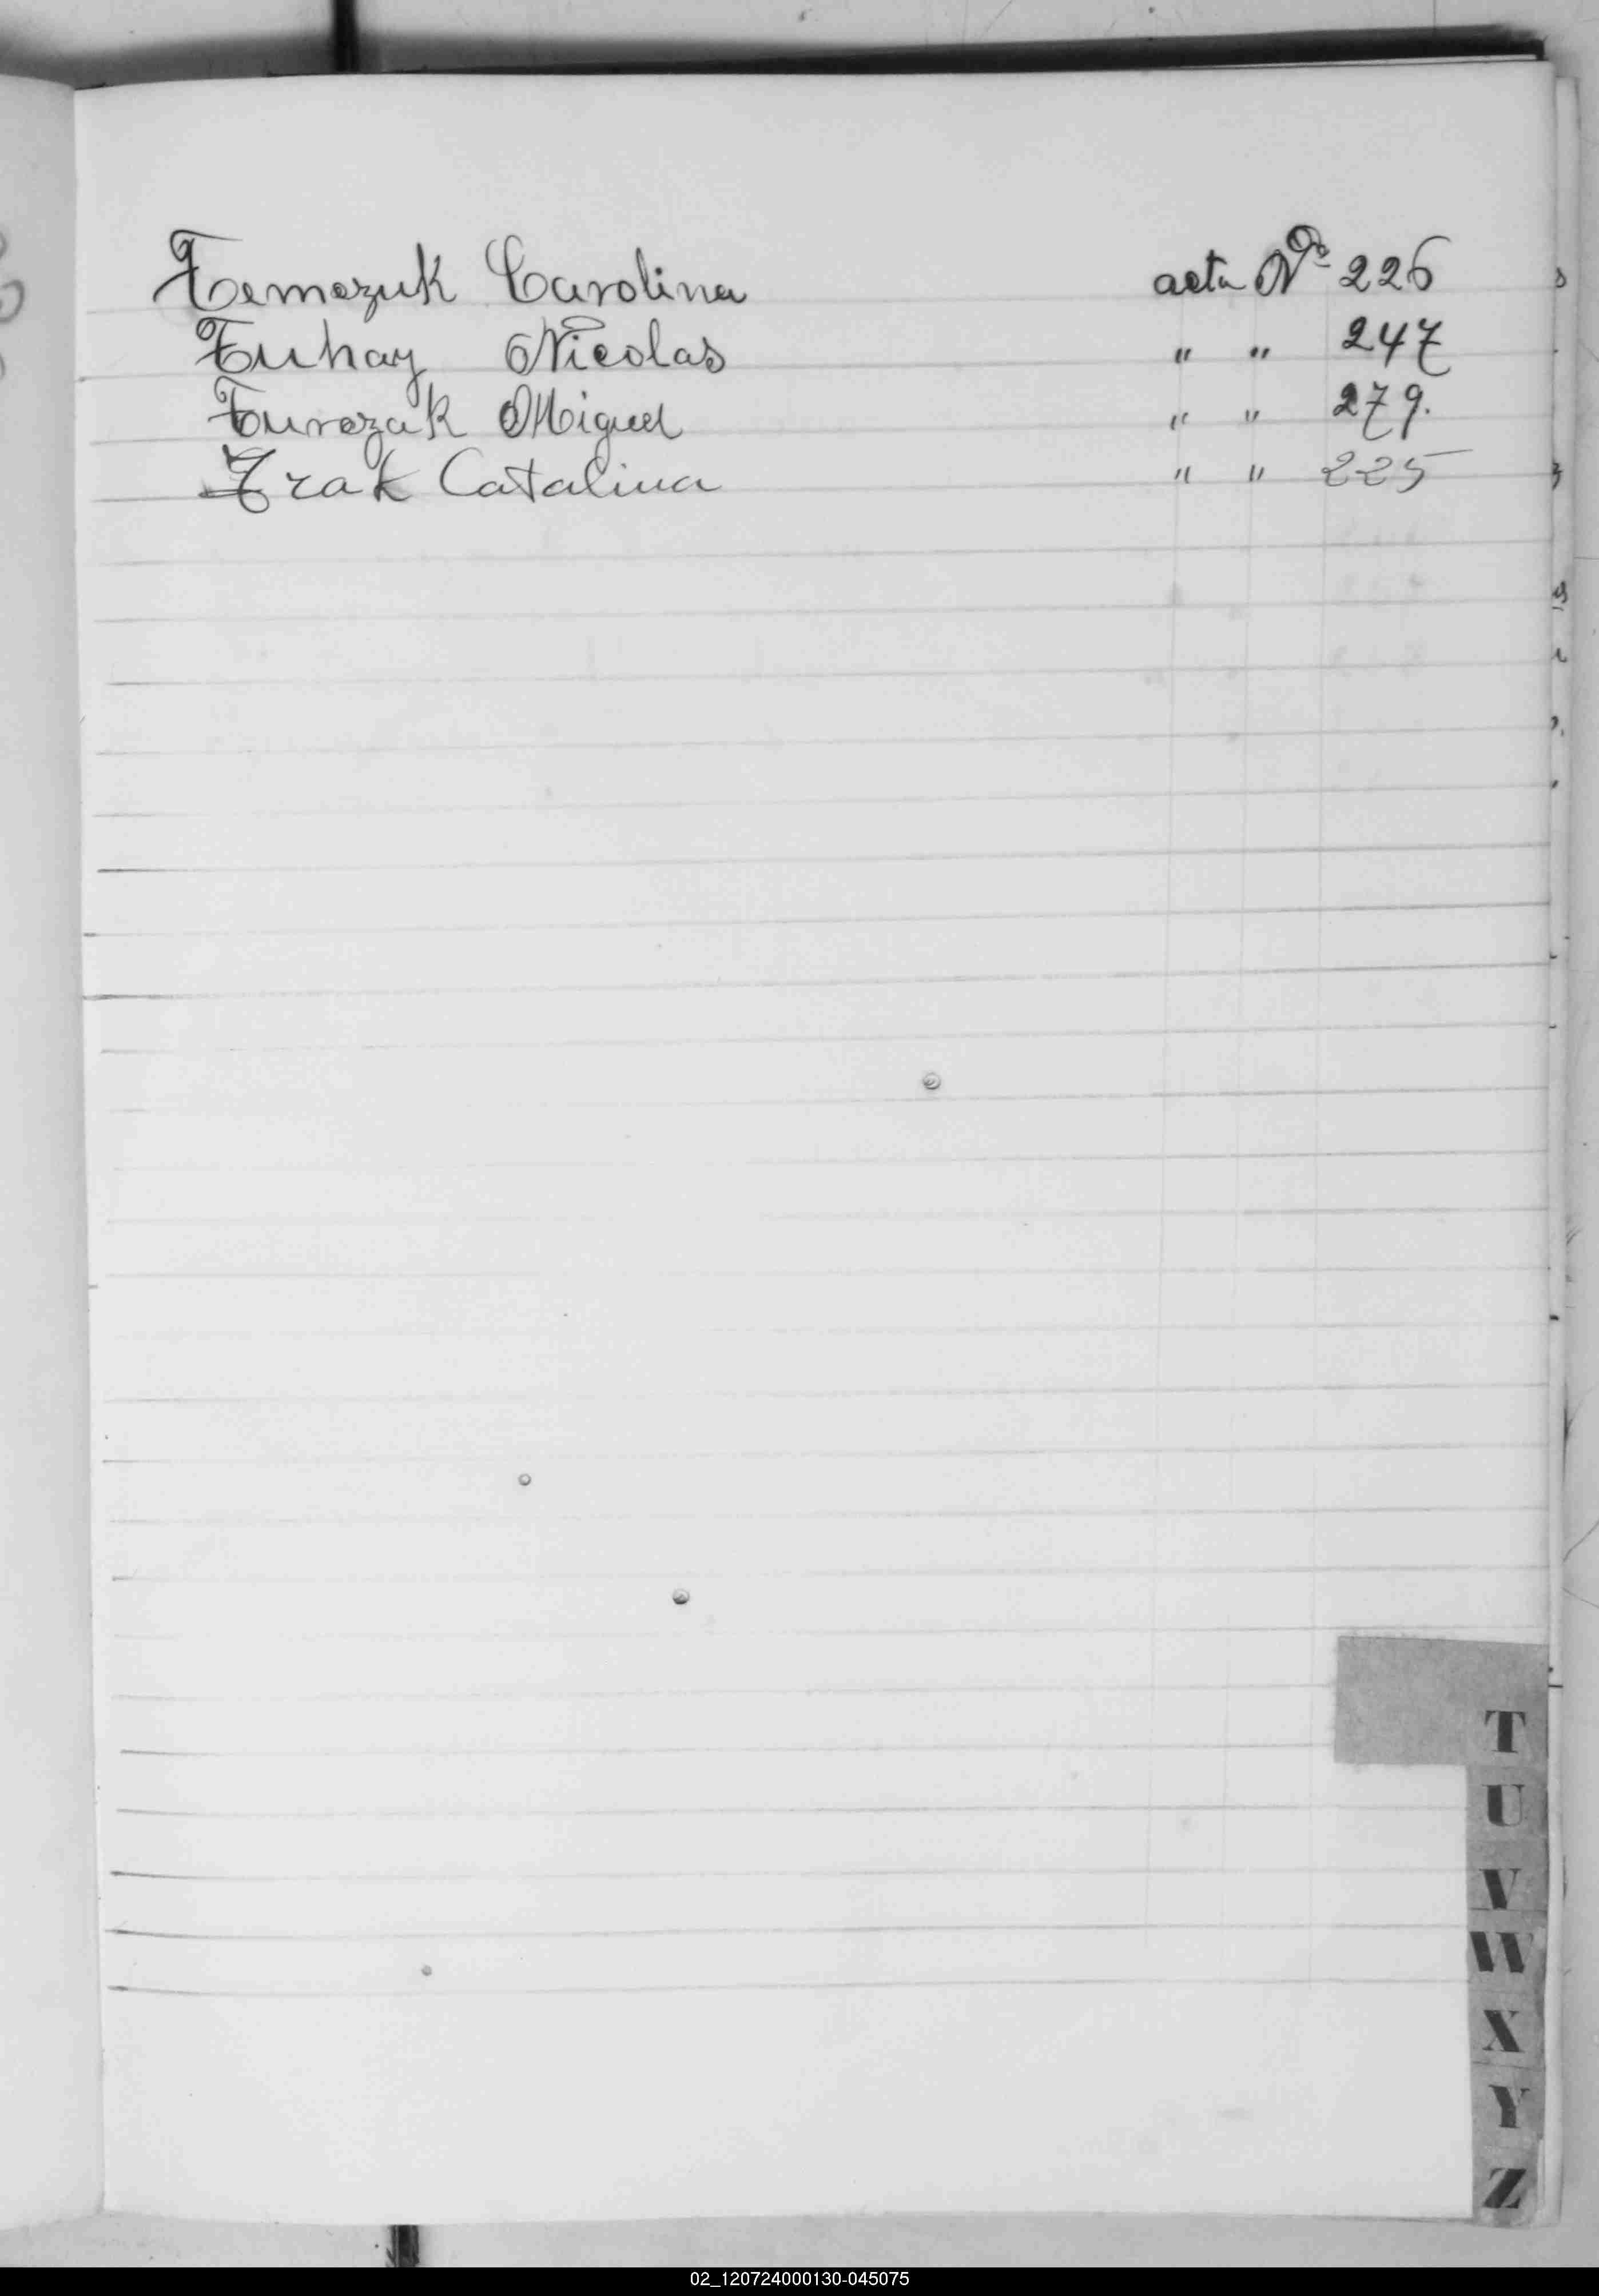 Temczuk Carolina acta Nº 226
Tuhay Nicolas " " 247
Turczak Miguel " " 279.
Trak Catalina " " 225
T
U
V
W
X
Y
Z
02_120724000130-045075